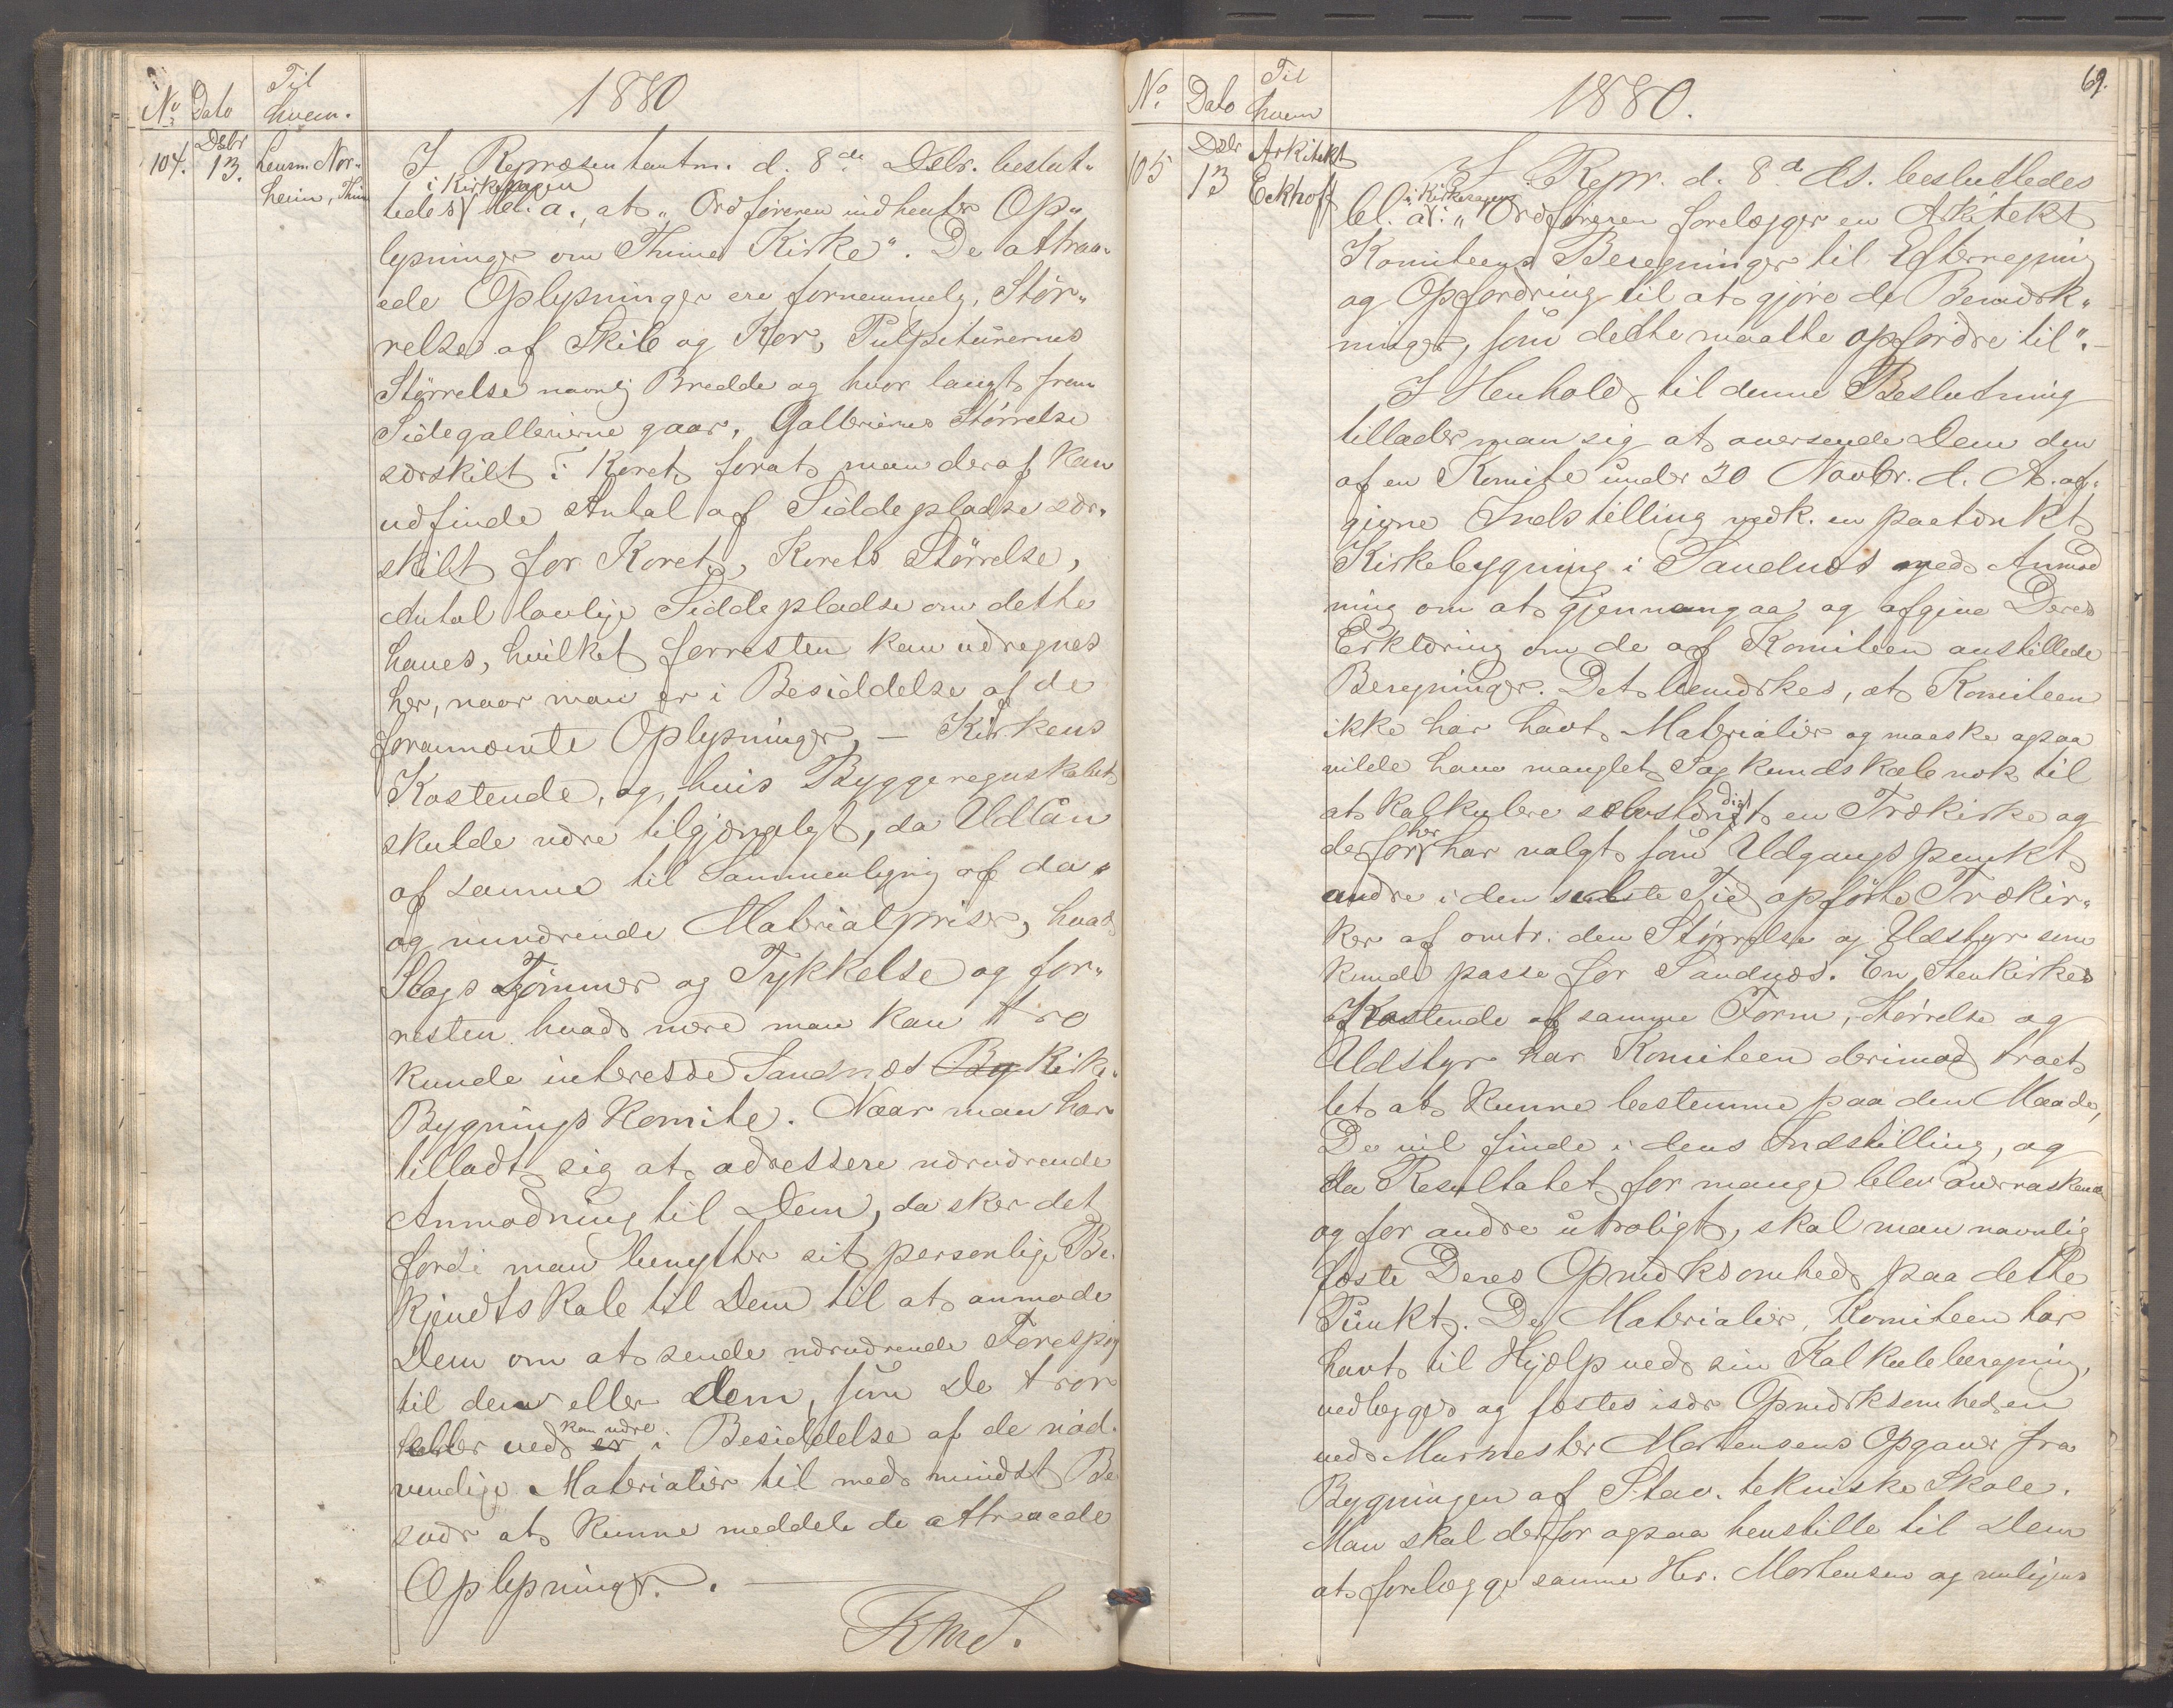 No Dato Til hvem. 1880
104. Dsbr 13. Lensm. Norheim, Thime
I Repræsentantm. d. 8de Dsbr. beslut-
tedes i Kirkesagen bl. a., at "Ordføreren indhenter Op-
lysninger om Thime Kirke". De attraa-
ede Oplysninger ere fornemmelig, Stør-
relse af Skib og Kor, Pulpiturernes
Størrelse navnlig Bredde og hvor langt frem
Sidegallerierne gaar, Galleriernes Størrelse
særskilt i Koret, forat man deraf kan
udfinde Antal af Siddepladse sær-
skilt for Koret, Korets Størrelse,
Antal lovlige Siddepladse om dette
haves, hvilket forresten kan udregnes
her, naar man er i Besiddelse af de
forannævnte Oplysninger, — Kirkens
Kostende, og, hvis Byggeregnskabet
skulde være tilgjængeligt, da Udlån
af samme til Sammenligning af da-
og nuværende Materialpriser, hvad
Slags Tømmer og Tykkelse og for-
resten hvad mere man kan tro
kunde interesse Sandnæs By Kirke-
Bygnings Komite. Naar man har
tilladt sig at adressere nærværende
Anmodning til Dem, da sker det
fordi man benytter sit personlige Be-
kjendtskab til Dem til at anmode
Dem om at sende nærværende Forespg
til den eller dem, som De tror
heller ved er kan være i Besiddelse af de nød-
vendige Materialier til med mindst Be-
svær at kunne meddele de attraaede
Oplysninger. —
No. Dato Til hvem 1880. 69.
105 Dsbr 13 Arkitekt Eckhoff
I Repr. d. 8de ds. besluttedes
bl. a. i Kirkesagen: "Ordføreren forelægger en Arkitekt
Komiteens Beregninger til Efterregning
og Opfordring til at gjøre de Bemærk-
ninger, som dette maatte opfordre til". —
I Henhold til denne Beslutning
tillader man sig at oversende Dem den
af en Komite under 30 Novbr. d. A. af-
givne Indstilling vedk. en paatænkt
Kirkebygning i Sandnæs med Anmod
ning om at gjennemgaa og afgive Deres
Erklæring om de af Komiteen anstillede
Beregninger. Det bemærkes, at Komiteen
ikke har havt Materialier og maaske ogsaa
vilde have manglet Sagkundskab nok til
at kalkulere selvstændigt en Trækirke og
derfor her har valgt som Udgangspunkt
andre i den sidste Tid opførte Trækir-
ker af omtr. den Størrelse og Udstyr som
kunde passe for Sandnæs. En Stenkirkes
Kostende af samme Form, Størrelse og
Udstyr har Komiteen derimod troet
let at kunne bestemme paa den Maade,
De vil finde i dens Indstilling, og
da Resultatet for mange blev overraskende
og for andre utroligt, skal man navnlig
fæste Deres Opmærksomhed paa dette
Punkt. De Materialier, Komiteen har
havt til Hjælp ved sin Kalkuleberegning,
vedlægges og fæstes især Opmærksomheden
ved Murmester Mortensens Opgaver fra
Bygningen af Stav. tekniske Skole.
Man skal derfor ogsaa henstille til Dem
at forelægge samme Hr. Mortensen og muligens